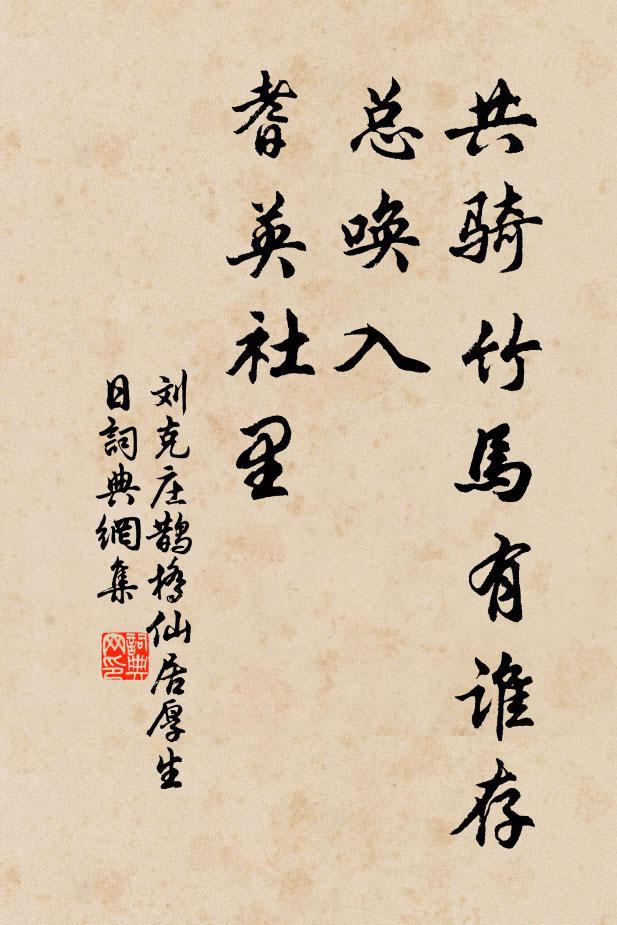 共骑竹馬有谁存
总唤入
耆英社里
刘克庄鹊橋仙居厚生
日詞典網集
詞典
网印